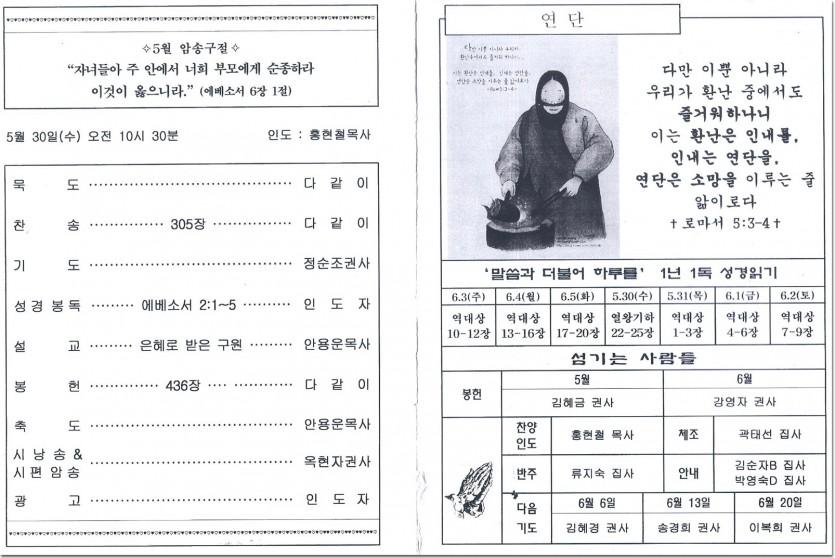 ✧5월 암송구절✧
“자녀들아 주 안에서 너희 부모에게 순종하라
이것이 옳으니라.” (에베소서 6장 1절)
5월 30일(수) 오전 10시 30분 인도 : 홍현철목사
묵 도 다 같 이
찬 송 305장 다 같 이
기 도 정순조권사
성경봉독 에베소서 2:1~5 인 도 자
설 교 은혜로 받은 구원 안용운목사
봉 헌 436장 다 같 이
축 도 안용운목사
시 낭 송 &
시 편 암 송 옥현자권사
광 고 인 도 자
연 단
다만 이뿐 아니라
우리가 환난 중에서도
즐거워하나니
이는 환난은 인내를,
인내는 연단을,
연단은 소망을 이루는 줄
앎이로다
✝로마서 5:3-4✝
‘말씀과 더불어 하루를’ 1년 1독 성경읽기
6.3(주) 6.4(월) 6.5(화) 5.30(수) 5.31(목) 6.1(금) 6.2(토)
역대상 역대상 역대상 열왕기하 역대상 역대상 역대상
10-12장 13-16장 17-20장 22-25장 1-3장 4-6장 7-9장
섬기는 사람들
봉헌 5월 6월
김혜금 권사 강영자 권사
찬양
인도 홍현철 목사 제조 곽태선 집사
반주 류지숙 집사 안내 김순자B 집사
박영숙D 집사
다음
기도 6월 6일 6월 13일 6월 20일
김혜경 권사 송경희 권사 이복희 권사